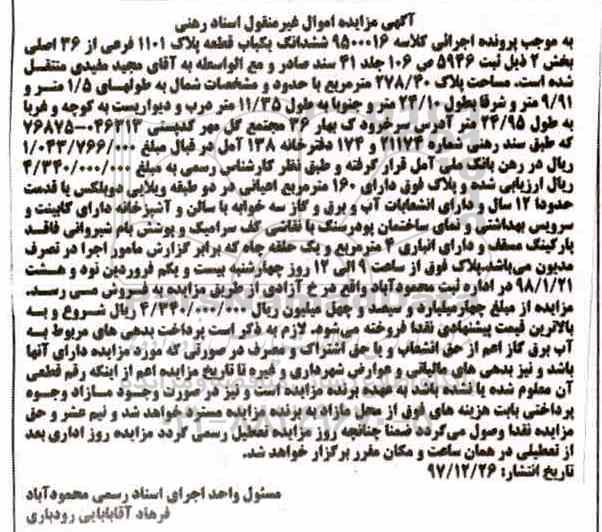 آگهی مزایده اموال غیرمنقول اسناد رهنی
به موجب پرونده اجرائی کلاسه 9500016 ششدانگ یکباب قطعه پلاک 1101 فرعی از 36 اصلی
بخش 2 ذیل ثبت 5946 ص 106 جلد 41 سند صادر و مع الواسطه به آقای مجید مفیدی منتقل
شده است. مساحت پلاک 278/40 مترمربع با حدود و مشخصات شمال به طولهای 1/5 متر و
9/91 متر و شرقا بطول 24/10 متر و جنوبا به طول 11/35 متر درب و دیواریست به کوچه و غربا
به طول 24/95 متر آدرس سرخرود ک بهار 36 مجتمع گل مهر کدپستی 046313-76875
که طبق سند رهنی شماره 21174 و 174 دفترخانه 138 آمل در قبال مبلغ 1/043/766/000
ریال در رهن بانک ملی آمل قرار گرفته و طبق نظر کارشناس رسمی به مبلغ 4/340/000/000
ریال ارزیابی شده و پلاک فوق دارای 160 مترمربع اعیانی در دو طبقه ویلایی دوبلکس با قدمت
حدودا 12 سال و دارای انشعابات آب و برق و گاز سه خوابه با سالن و آشپزخانه دارای کابینت و
سرویس بهداشتی و نمای ساختمان پودرسنگ با نقاشی کف سرامیک و پوشش بام شیروانی فاقد
پارکینگ مسقف و دارای انباری 4 مترمربع و یک حلقه چاه که برابر گزارش مامور اجرا در تصرف
مدیون می‌باشد.پلاک فوق از ساعت 9 الی 12 روز چهارشنبه بیست و یکم فروردین نود و هشت
98/1/21 در اداره ثبت محمودآباد واقع در خ آزادی از طریق مزایده به فروش می رسد.
مزایده از مبلغ چهارمیلیارد و سیصد و چهل میلیون ریال 4/340/000/000 ریال شروع و به
بالاترین قیمت پیشنهادی نقدا فروخته می‌شود. لازم به ذکر است پرداخت بدهی های مربوط به
آب برق گاز اعم از حق انشعاب و یا حق اشتراک و مصرف در صورتی که مورد مزایده دارای آنها
باشد و نیز بدهی های مالیاتی و عوارض شهرداری و غیره تا تاریخ مزایده اعم از اینکه رقم قطعی
آن معلوم شده یا نشده باشد به عهده برنده مزایده است و نیز در صورت وجود مازاد وجوه
پرداختی بابت هزینه های فوق از محل مازاد به برنده مزایده مسترد خواهد شد و نیم عشر و حق
مزایده نقدا وصول می‌گردد ضمنا چنانچه روز مزایده تعطیل رسمی گردد مزایده روز اداری بعد
از تعطیلی در همان ساعت و مکان مقرر برگزار خواهد شد.
تاریخ انتشار: 97/12/26
مسئول واحد اجرای اسناد رسمی محمودآباد
فرهاد آقابابایی رودباری